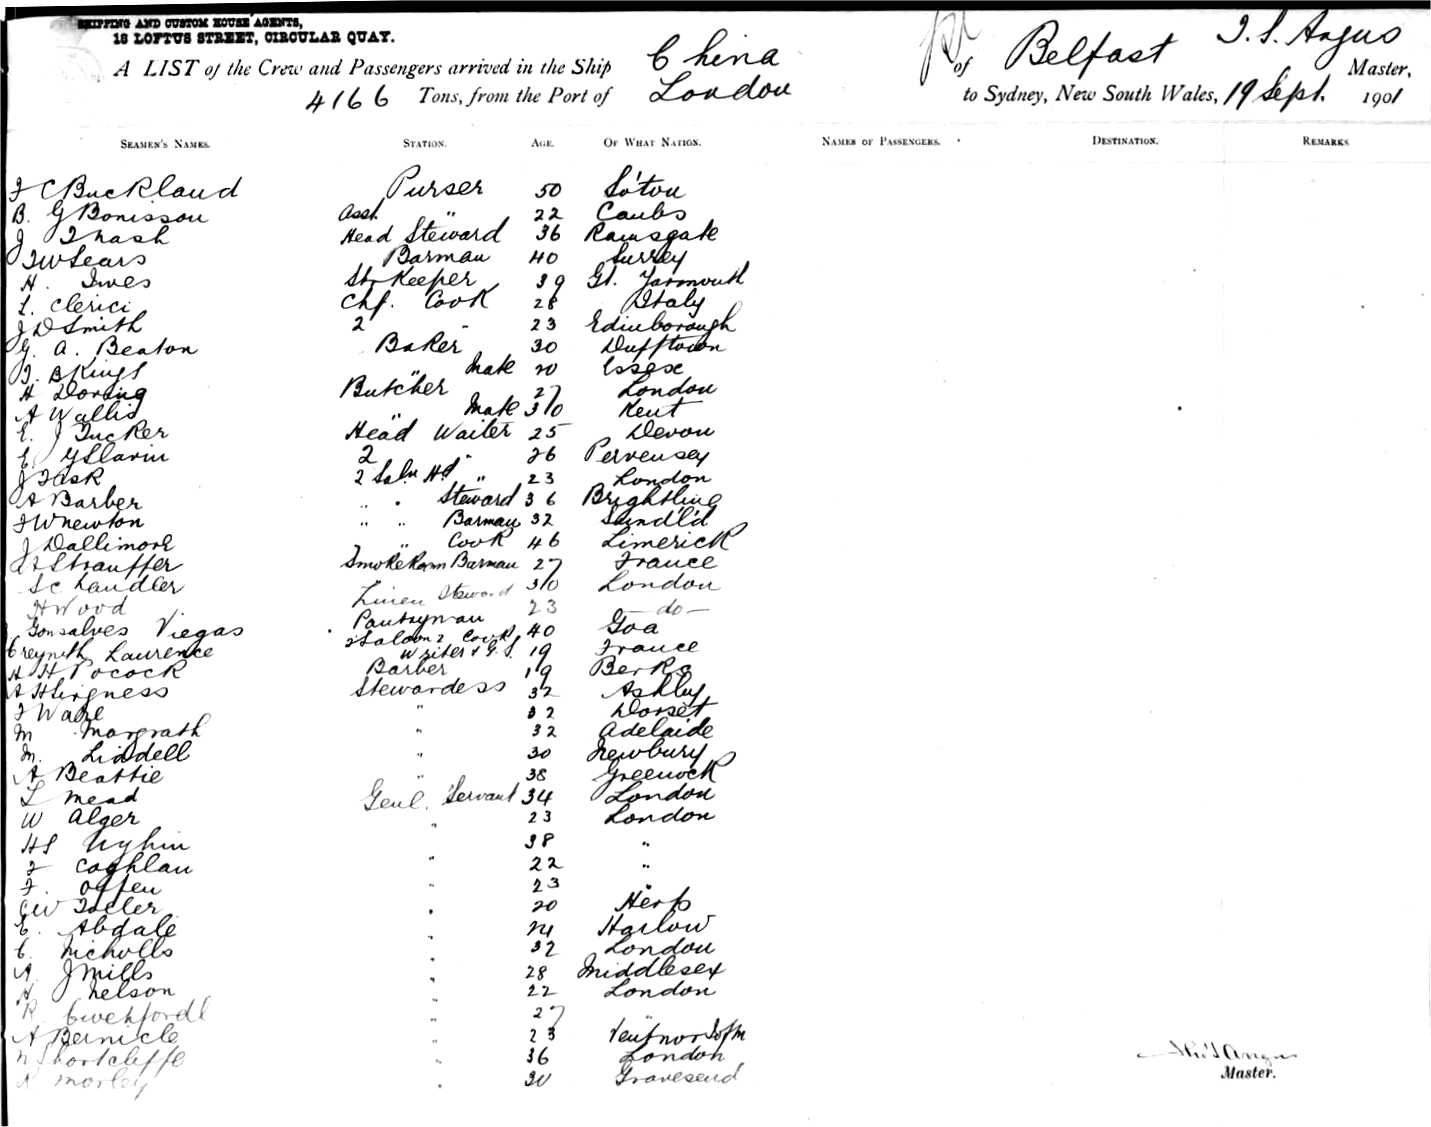 SHIPPING AND CUSTOM HOUSE AGENTS,
18 LOFTUS STREET, CIRCULAR QUAY.
A LIST of the Crew and Passengers arrived in the Ship China of Belfast T. S. Angus Master,
4166 Tons, from the Port of London to Sydney, New South Wales, 19 Sept. 1901
SEAMEN'S NAMES. STATION. AGE. OF WHAT NATION. NAMES OF PASSENGERS. DESTINATION. REMARKS
F C Buckland Purser 50 So'ton
B. G Bonisson Asst. " 22
J Thash Head Steward 36 Ramsgate
T W Sears Barman 40 Surrey
H. Ives Str Keeper 39 Gt. Yarmouth
L. Clerici Chf. Cook 28 Italy
J D Smith 2 " 23 Edinborough
G. A. Beaton Baker 30 Dufftown
J. B Kings " Mate 20 Essex
H Doring Butcher 27 London
A Wallis " Mate 30 Kent
E. J Tucker Head Waiter 25 Devon
E G Slavin 2 " 26 Pervensey
J Task 2 Saln Hd " 23 London
A Barber " " Steward 36 Brightling
F W Newton " " Barman 32 Sund'l'd
J Dallimore " " Cook 46 Limerick
Strauffer Smoke Room Barman 27 France
S Chandler 30 London
H Wood Linen Steward 23 —do—
Gonsalves Viegas Pantryman 40 Goa
Laurence 2 Saloon 2 Cook 19 France
A H Pocock Writer & G. S. 19 Berks
A H Lirgness Barber 32 Ashley
F Ware Stewardess 32 Dorset
M Margrath " 32 Adelaide
M. Liddell " 30 Newbury
A Beattie " 38 Greenock
L Mead " 34 London
W Alger Genl. Servant 23 London
H S " 38 "
F Coghlan " 22 "
F. Offen " 23 "
C W Toller " 20 Herts
E. Abdale " 24 Harlow
C. Nicholls " 32 London
A. J Mills " 28 Middlesex
A Nelson " 22 London
R " 27 "
A Bernicle " 23 Ventnor I of W
N Shortcliffe " 36 London
R Morley " 30 Gravesend
Thos S Angus
Master.